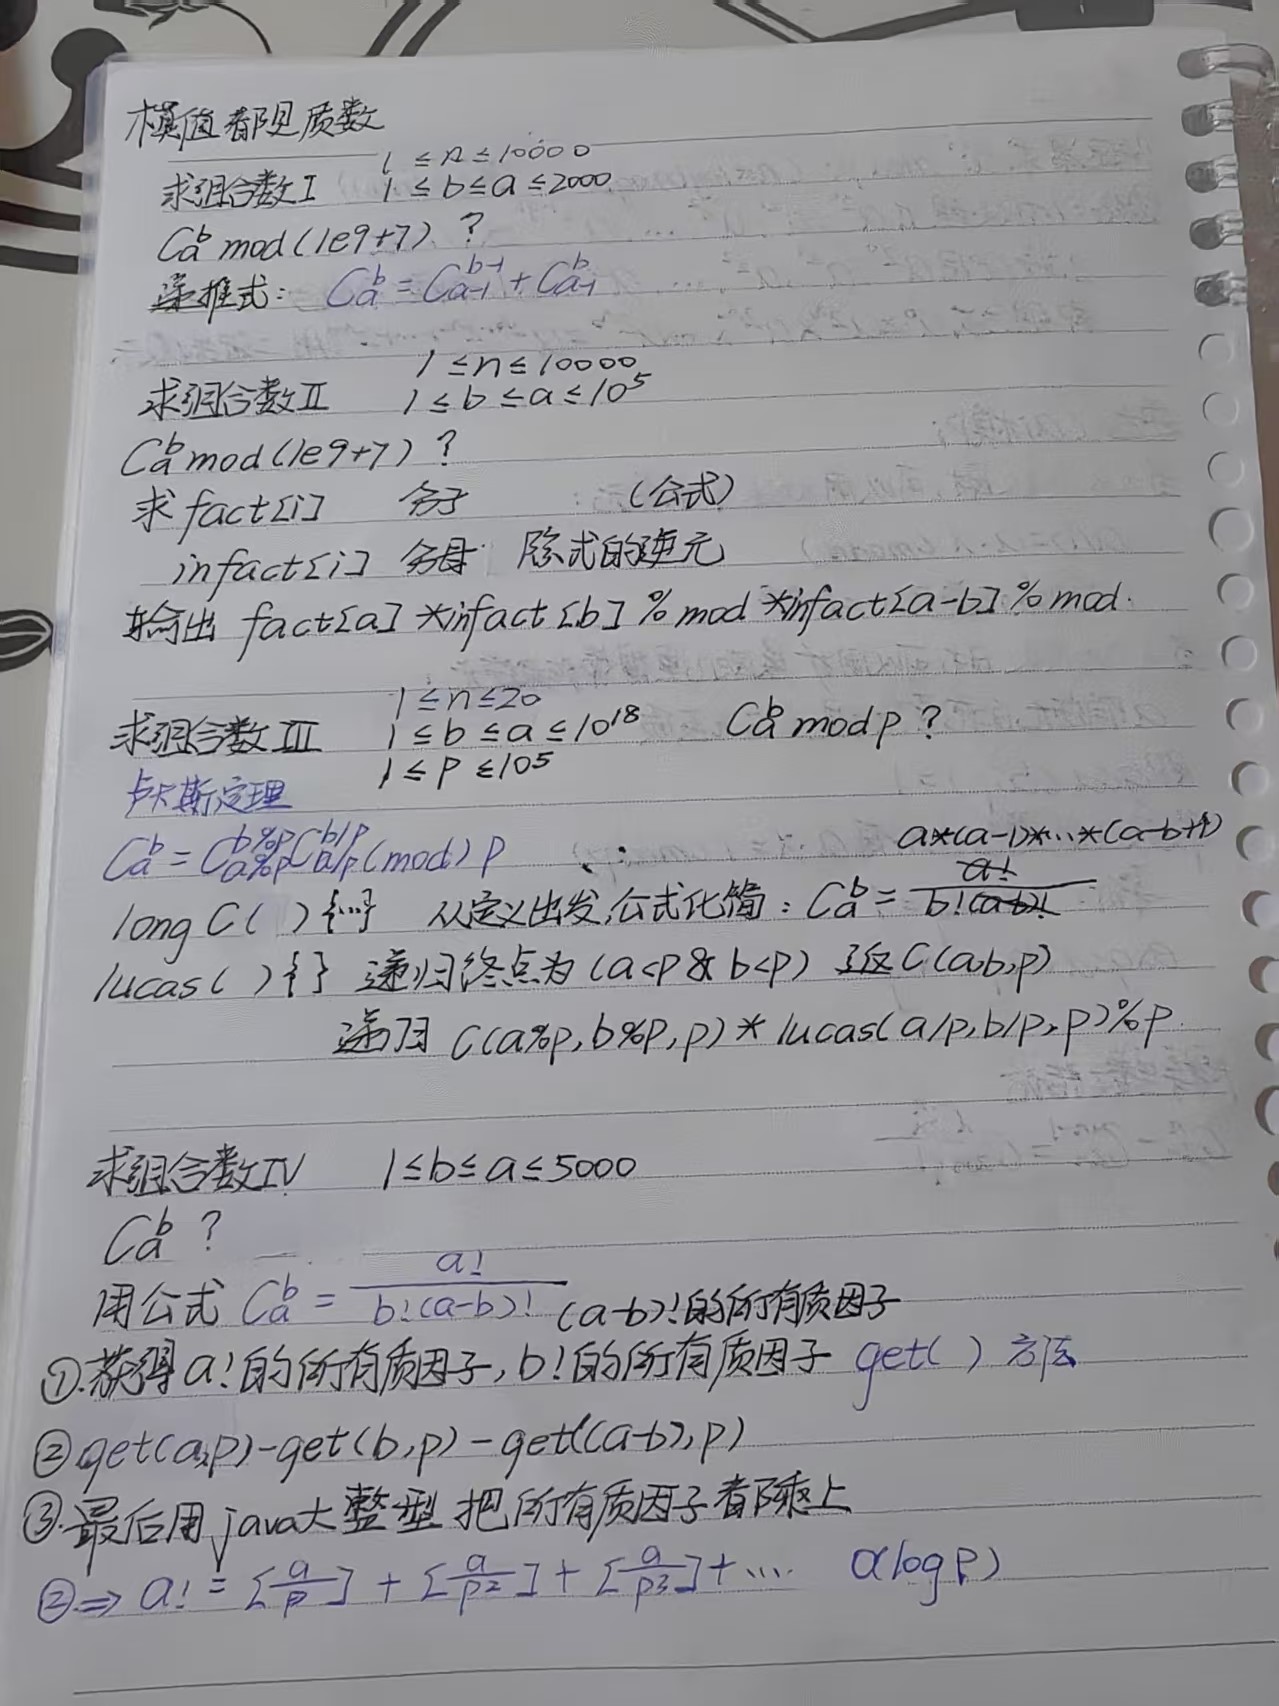 模值都是质数
1 ≤ n ≤ 10000
求组合数I 1 ≤ b ≤ a ≤ 2000
C_a^b mod (1e9+7) ?
递推式: C_a^b = C_{a-1}^{b-1} + C_{a-1}^b
1 ≤ n ≤ 10000
求组合数II 1 ≤ b ≤ a ≤ 10^5
C_a^b mod (1e9+7) ?
求 fact[i] 分子 (公式)
infact[i] 分母 除式的逆元
输出 fact[a] * infact[b] % mod * infact[a-b] % mod.
1 ≤ n ≤ 20
求组合数III 1 ≤ b ≤ a ≤ 10^18 C_a^b mod p ?
1 ≤ p ≤ 10^5
卢卡斯定理
C_a^b = C_{a%p}^{b%p} C_{a/p}^{b/p} (mod) p
a*(a-1)*...*(a-b+1)
a!
long C( ) {...} 从定义出发,公式化简: C_a^b = b!(a-b)!
lucas( ) { } 递归终点为 (a<p & b<p) 返 C(a,b,p)
递归 C(a%p, b%p, p) * lucas(a/p, b/p, p) % p.
求组合数IV 1 ≤ b ≤ a ≤ 5000
C_a^b ?
用公式 C_a^b = a! / b!(a-b)! (a-b)!的所有质因子
①.获得a!的所有质因子, b!的所有质因子 get( ) 方法
② get(a,p) - get(b,p) - get((a-b), p)
③.最后用java大整型 把所有质因子都乘上
② ⇒ a! = [a/p] + [a/p2] + [a/p3] + .... O(log P)